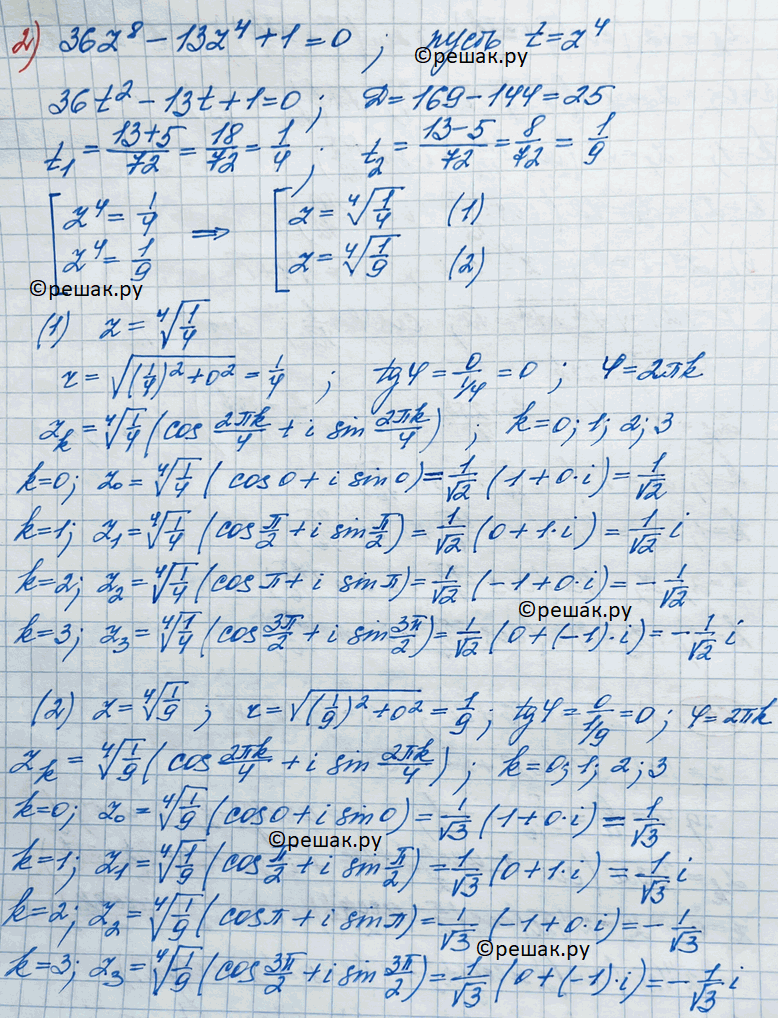 2) 36z⁸ − 13z⁴ + 1 = 0 ; пусть t = z⁴
©решак.ру
36t² − 13t + 1 = 0 ; D = 169 − 144 = 25
t₁ = (13+5)/72 = 18/72 = 1/4 ; t₂ = (13−5)/72 = 8/72 = 1/9
[ z⁴ = 1/4 ⇒ [ z = ⁴√(1/4) (1)
z⁴ = 1/9 z = ⁴√(1/9) (2)
©решак.ру
(1) z = ⁴√(1/4)
r = √((1/4)² + 0²) = 1/4 ; tgφ = 0/(1/4) = 0 ; φ = 2πk
z_k = ⁴√(1/4) (cos 2πk/4 + i sin 2πk/4) ; k = 0; 1; 2; 3
k=0; z₀ = ⁴√(1/4) (cos 0 + i sin 0) = 1/√2 (1 + 0·i) = 1/√2
k=1; z₁ = ⁴√(1/4) (cos π/2 + i sin π/2) = 1/√2 (0 + 1·i) = 1/√2 i
k=2; z₂ = ⁴√(1/4) (cos π + i sin π) = 1/√2 (−1 + 0·i) = −1/√2
©решак.ру
k=3; z₃ = ⁴√(1/4) (cos 3π/2 + i sin 3π/2) = 1/√2 (0 + (−1)·i) = −1/√2 i
(2) z = ⁴√(1/9) ; r = √((1/9)² + 0²) = 1/9 ; tgφ = 0/(1/9) = 0 ; φ = 2πk
z_k = ⁴√(1/9) (cos 2πk/4 + i sin 2πk/4) ; k = 0; 1; 2; 3
k=0; z₀ = ⁴√(1/9) (cos 0 + i sin 0) = 1/√3 (1 + 0·i) = 1/√3
©решак.ру
k=1; z₁ = ⁴√(1/9) (cos π/2 + i sin π/2) = 1/√3 (0 + 1·i) = 1/√3 i
k=2; z₂ = ⁴√(1/9) (cos π + i sin π) = 1/√3 (−1 + 0·i) = −1/√3
©решак.ру
k=3; z₃ = ⁴√(1/9) (cos 3π/2 + i sin 3π/2) = 1/√3 (0 + (−1)·i) = −1/√3 i